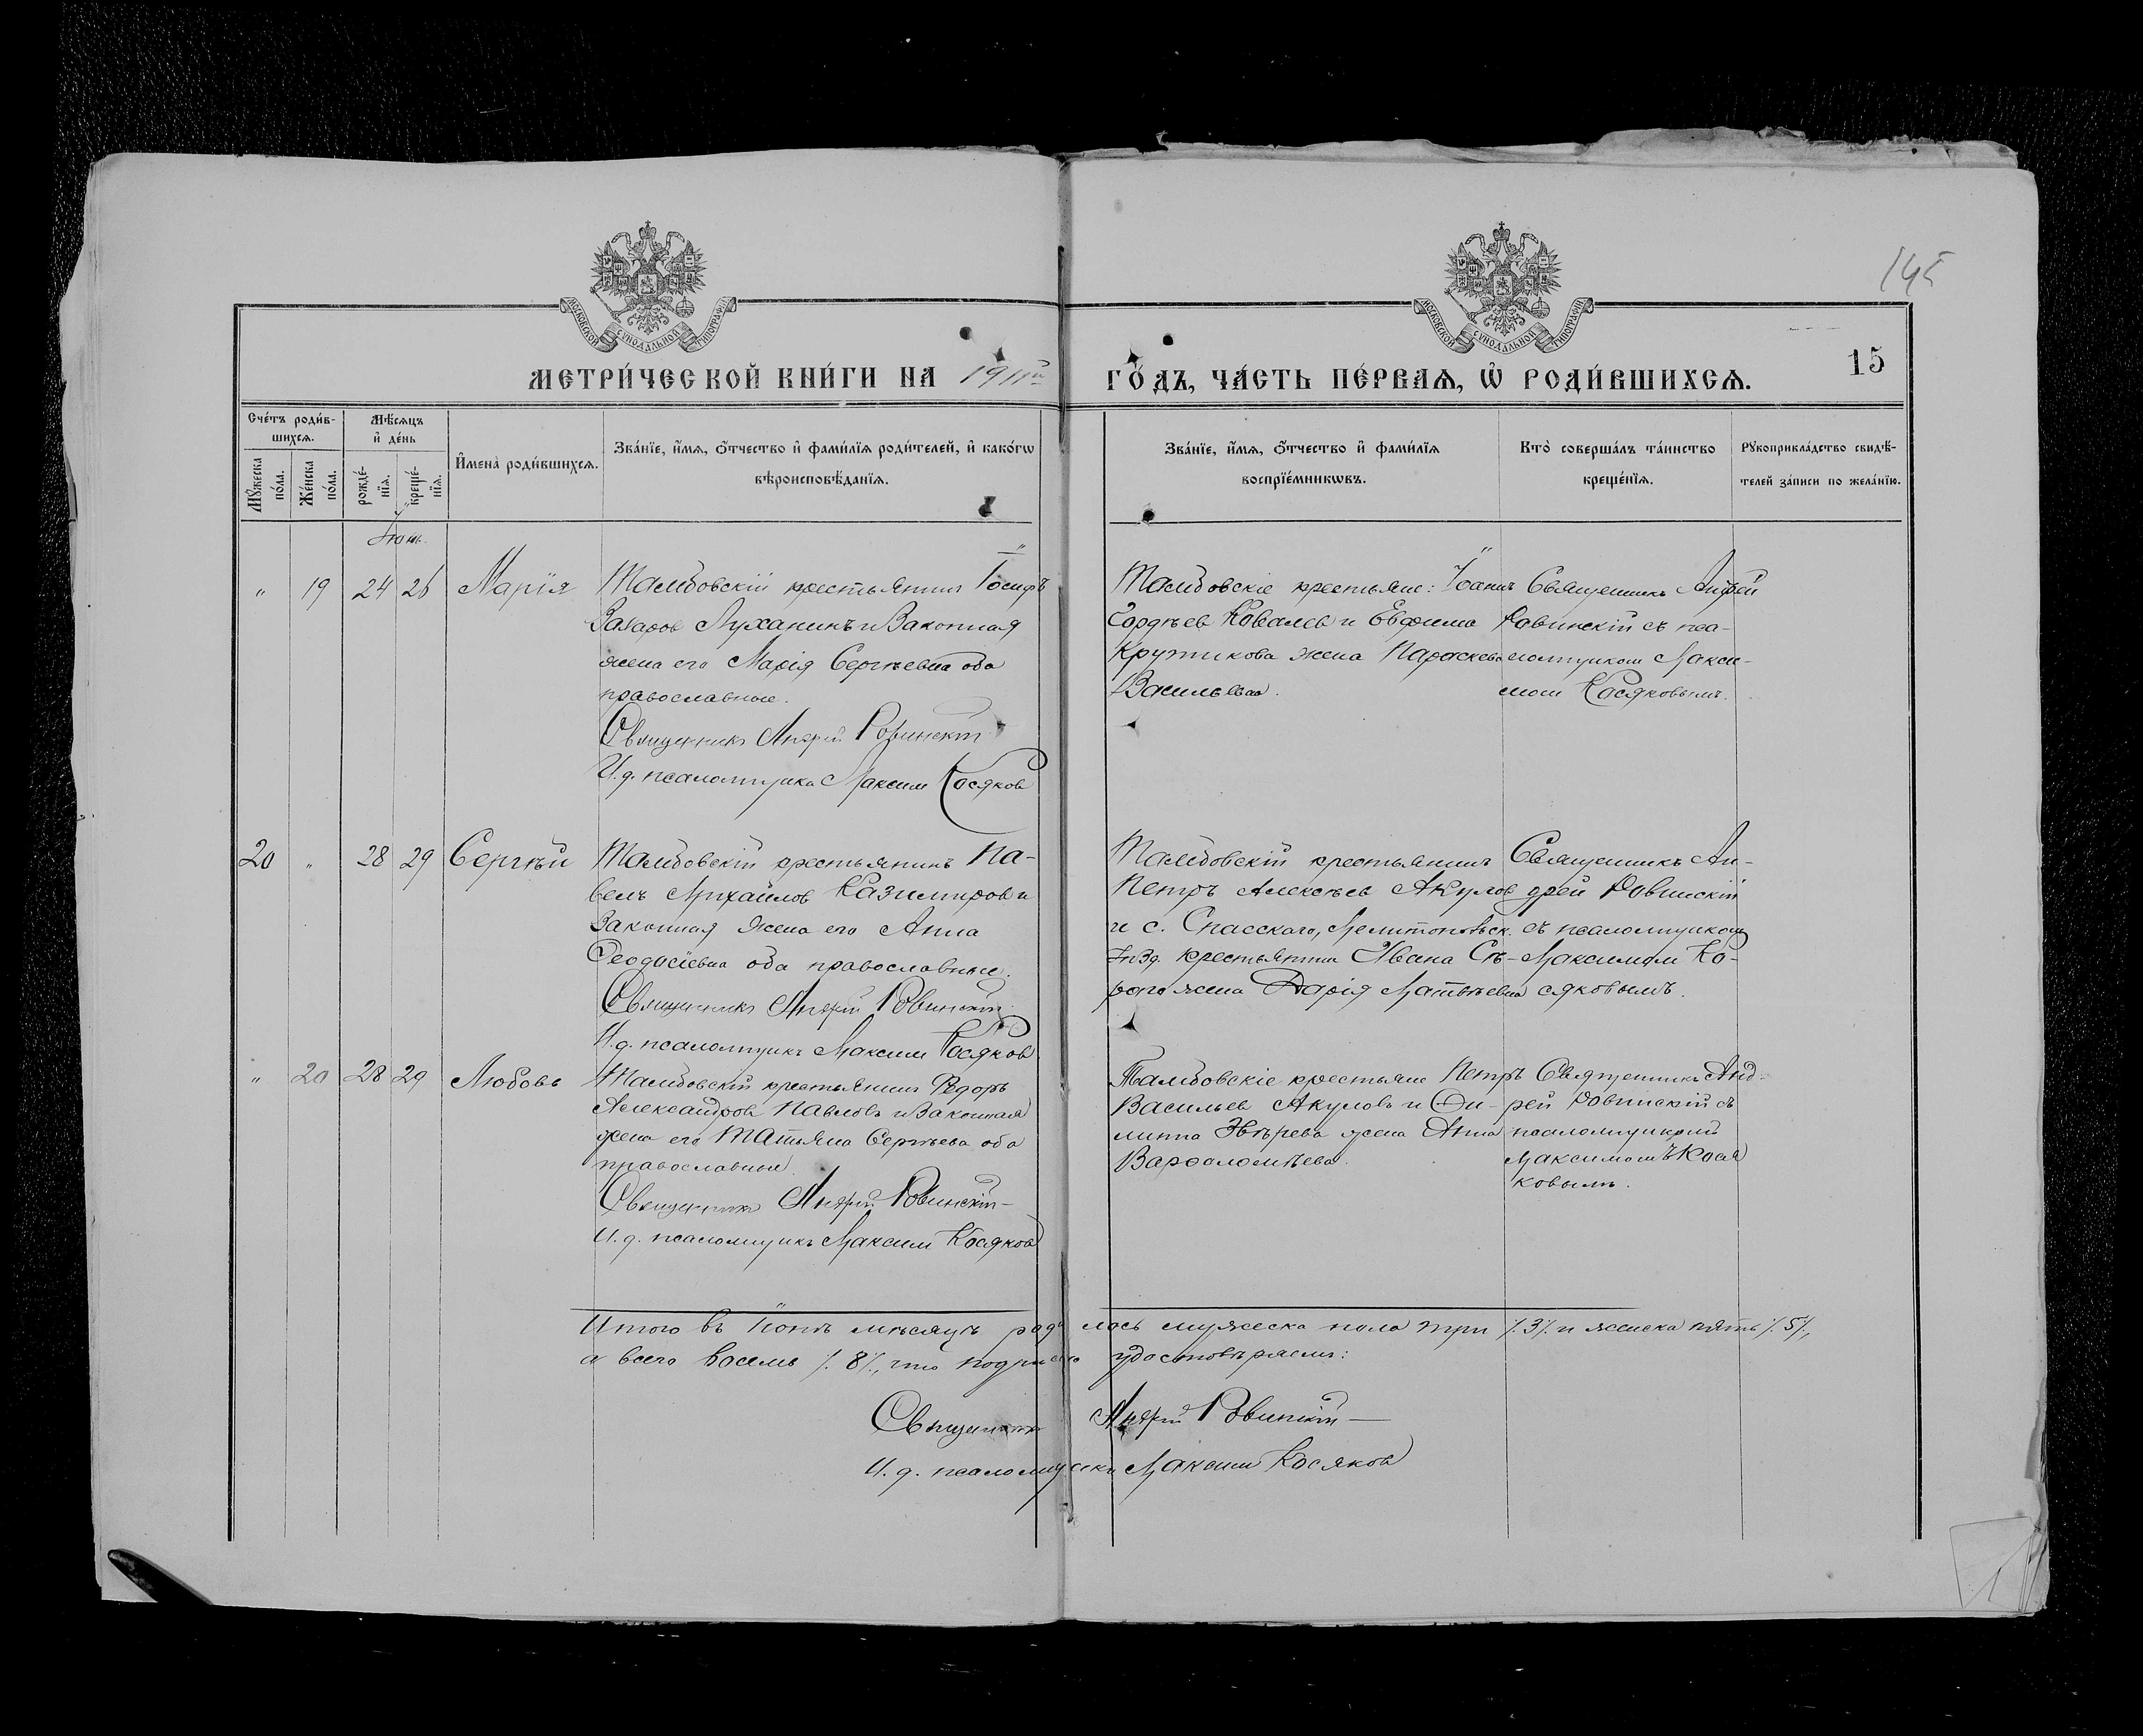 145
МОСКОВСКОЙ СУНОДАЛЬНОЙ ТИПОГРАФІИ
МОСКОВСКОЙ СУНОДАЛЬНОЙ ТИПОГРАФІИ
МЕТРИ́ЧЕСКОЙ КНИ́ГИ НА 1911й
ГО́ДЪ, ЧА́СТЬ ПЕ́РВАѦ, Ѡ҆ РОДИ́ВШИХСѦ.
15
Сче́тъ роди́в-
шихсѧ.
Мꙋ́жеска по́ла.
Же́нска по́ла.
Мѣ́сѧцъ
и҆ де́нь
рожде́-нїѧ.
креще́-нїѧ.
И҆мена̀ роди́вшихсѧ.
Зва́нїе, и҆́мѧ, ѻ҆́тчество и҆ фами́лїѧ роди́телей, и҆ како́гѡ
вѣроисповѣ́данїѧ.
Зва́нїе, и҆́мѧ, ѻ҆́тчество и҆ фами́лїѧ
воспрїе́мникѡвъ.
Кто̀ соверша́лъ та́инство
креще́нїѧ.
Рꙋкоприкла́дство свидѣ́-
телей за́писи по жела́нїю.
" 19 24 26 Марія
Тамбовскій крестьянинъ Іосифъ
Захаров Луханинъ и законная
жена его Марія Сергѣевна оба
православные.
Священникъ Андрей Ровинскій
И.д. псаломщика Максим Косяков
Тамбовскіе крестьяне: Іоаннъ
Гордѣев Ковалев и Евфима
Крутикова жена Параскева
Васильевна.
Священникъ Андрей
Ровинскій съ пса-
ломщиком Макси-
мом Косяковымъ.
20 " 28 29 Сергѣй
Тамбовскій крестьянинъ Па-
велъ Михайлов Казимиров и
законная жена его Анна
Феодосіевна оба православные.
Священникъ Андрей Ровинскій
И.д. псаломщикъ Максим Косяков
Тамбовскій крестьянинъ
Петръ Алексѣев Акулов
и с. Спасскаго, Мелитопольск.
крестьянина Ивана Сѣ-
раго жена Дарія Матвѣевна
Священникъ Ан-
дрей Ровинскій
съ псаломщиком
Максимом Ко-
сяковымъ.
" 20 28 29 Любовь
Тамбовскій крестьянинъ Ѳедоръ
Александров Павловъ и законная
жена его Татьяна Сергѣева оба
православные.
Священникъ Андрей Ровинскій
И.д. псаломщикъ Максим Косяков
Тамбовскіе крестьяне Петръ
Васильев Акуловъ и Фи-
липпа Звѣрева жена Анна
Варѳоломѣева.
Священникъ Анд-
рей Ровинскій съ
псаломщиком
Максимомъ Кося
ковымъ.
Итого въ Іюнѣ мѣсяцѣ родилось мужеска пола три /.3/. и женска пять /.5/.,
а всего восемь /.8/., что подписью удостовѣряемъ:
Священникъ Андрей Ровинскій
И.д. псаломщика Максим Косяков